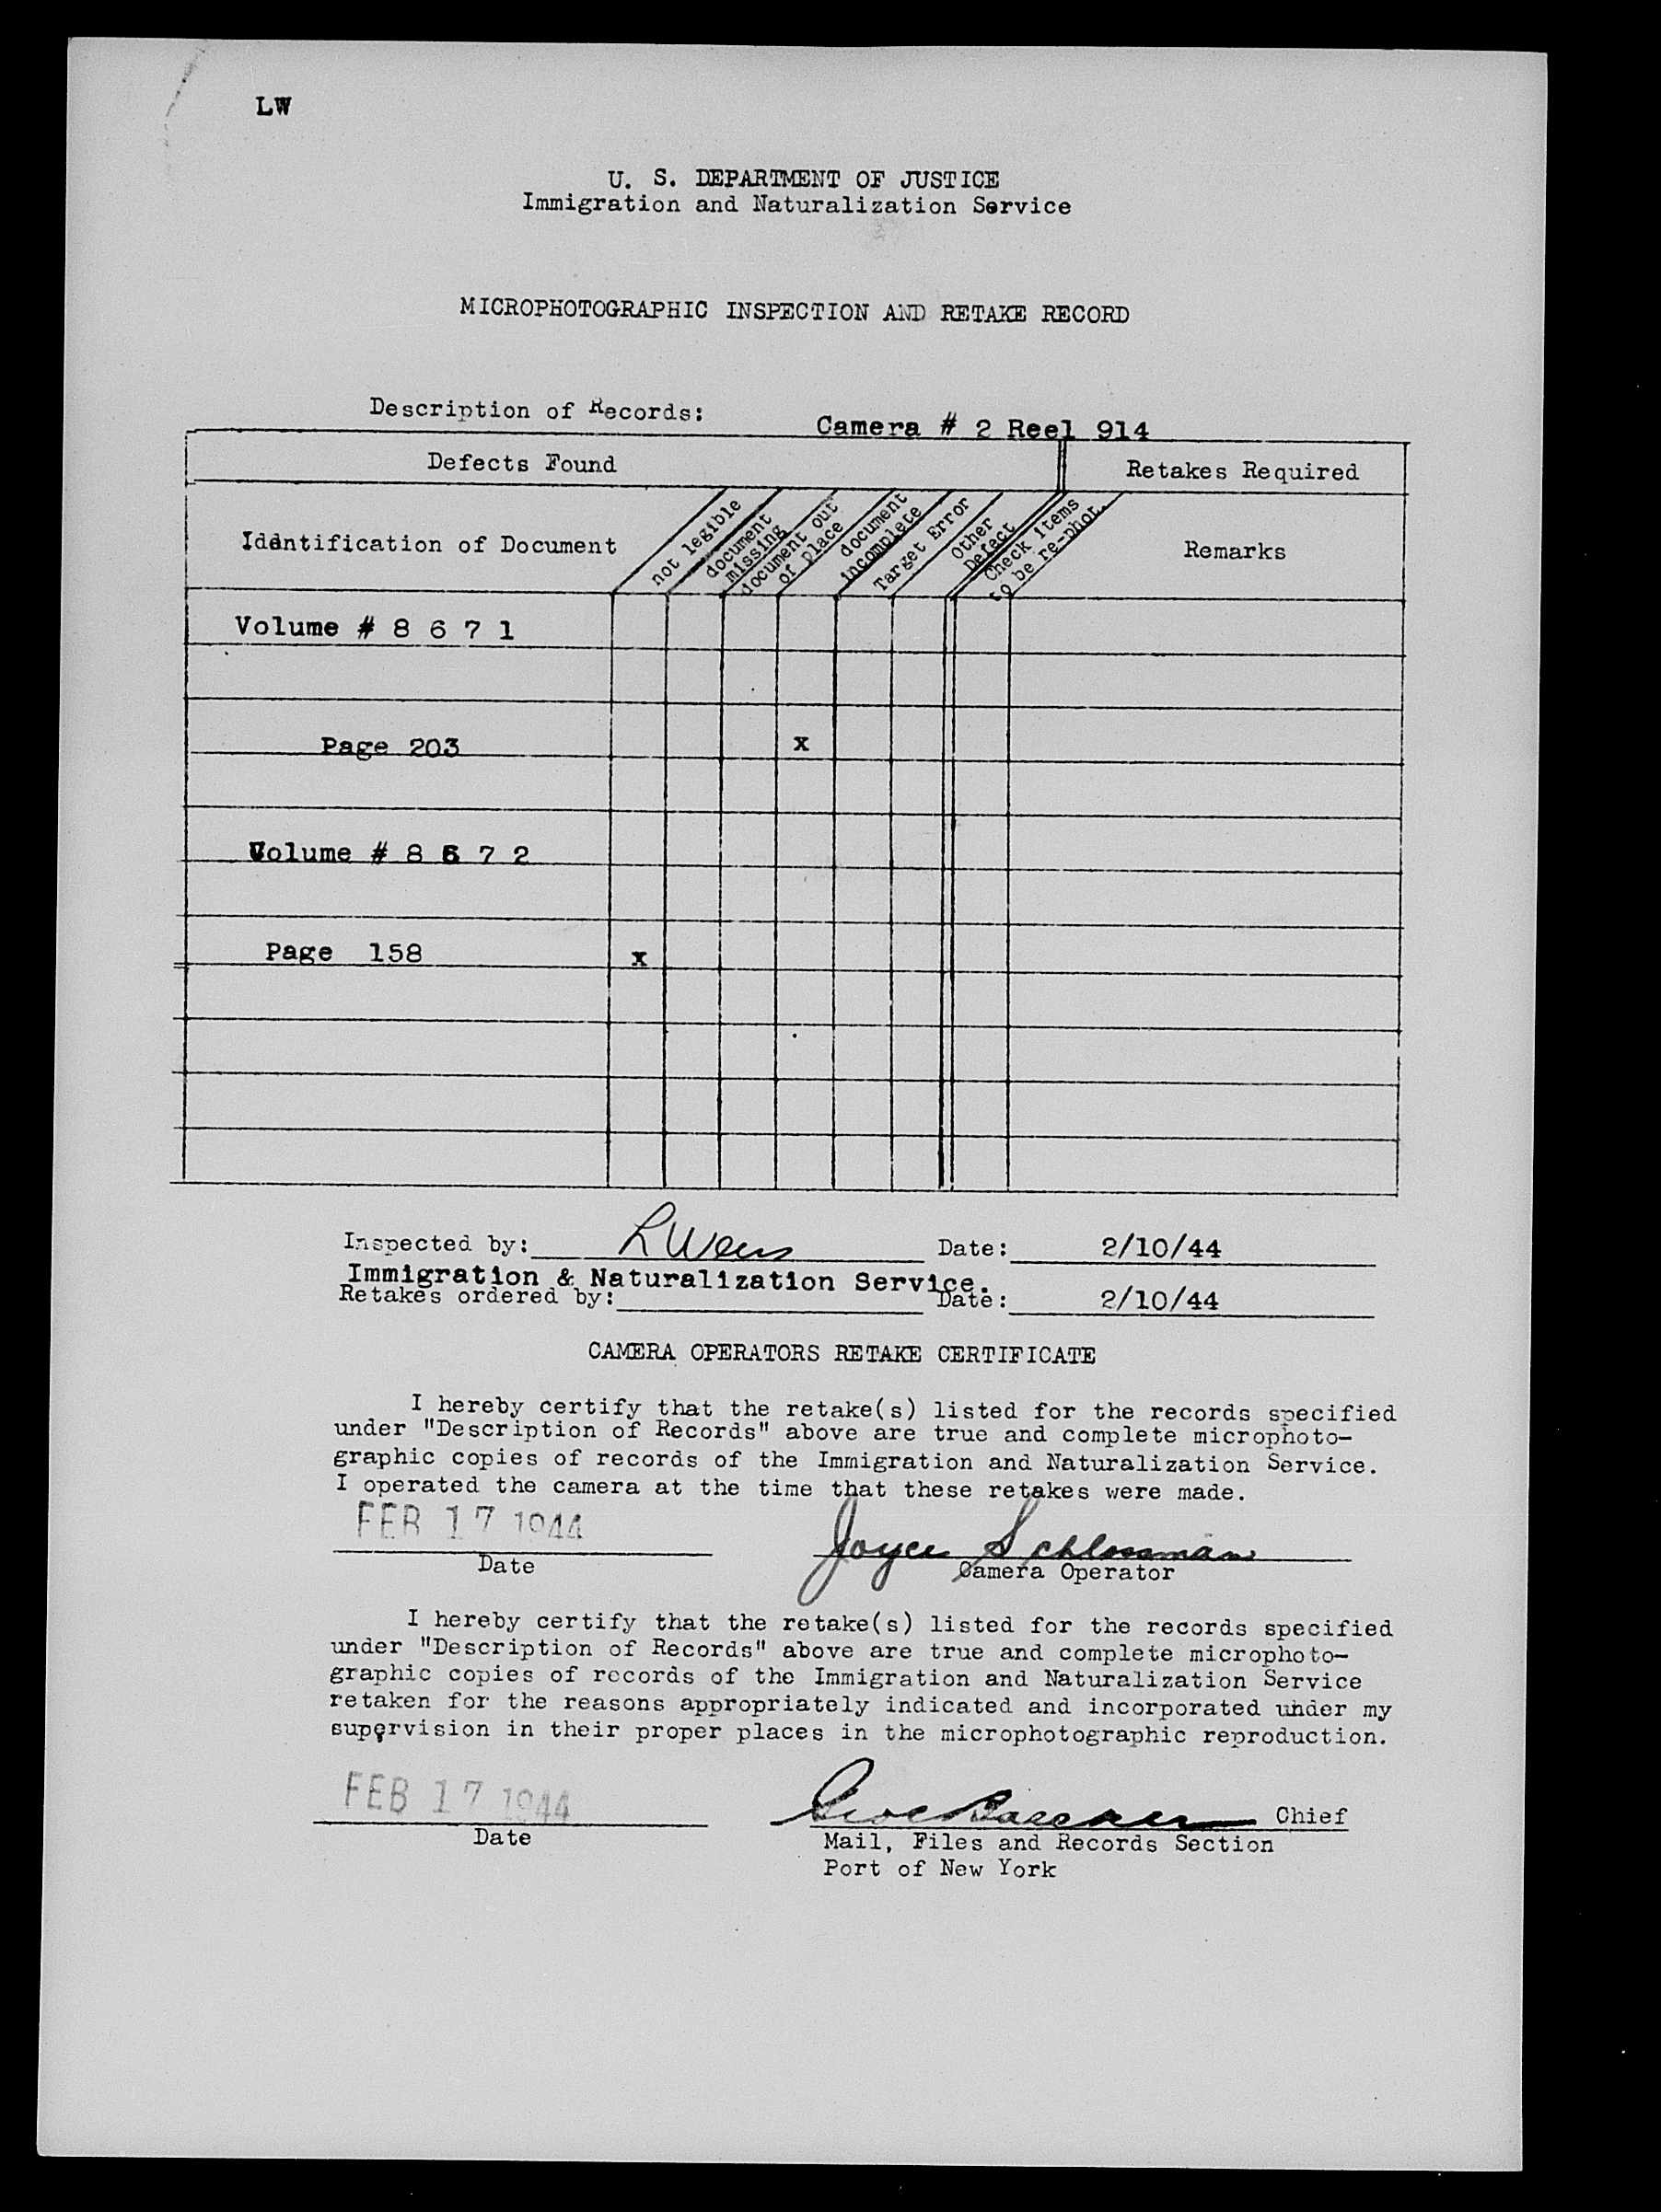 LW
U. S. DEPARTMENT OF JUSTICE
Immigration and Naturalization Service
MICROPHOTOGRAPHIC INSPECTION AND RETAKE RECORD
Description of Records:
Camera # 2 Reel 914
Defects Found
Retakes Required
Idantification of Document
not legible
document
missing
document out
of place
document
incomplete
Target Error
Other
Defect
Check items
to be re-phot.
Remarks
Volume # 8 6 7 1
Page 203 x
Volume # 8 6 7 2
Page 158 x
Inspected by: Date: 2/10/44
Immigration & Naturalization Service.
Retakes ordered by: Date: 2/10/44
CAMERA OPERATORS RETAKE CERTIFICATE
I hereby certify that the retake(s) listed for the records specified
under "Description of Records" above are true and complete microphoto-
graphic copies of records of the Immigration and Naturalization Service.
I operated the camera at the time that these retakes were made.
FEB 17 1944
Joyce Schlossman
Date
Camera Operator
I hereby certify that the retake(s) listed for the records specified
under "Description of Records" above are true and complete microphoto-
graphic copies of records of the Immigration and Naturalization Service
retaken for the reasons appropriately indicated and incorporated under my
supervision in their proper places in the microphotographic reproduction.
FEB 17 1944
Chief
Date
Mail, Files and Records Section
Port of New York